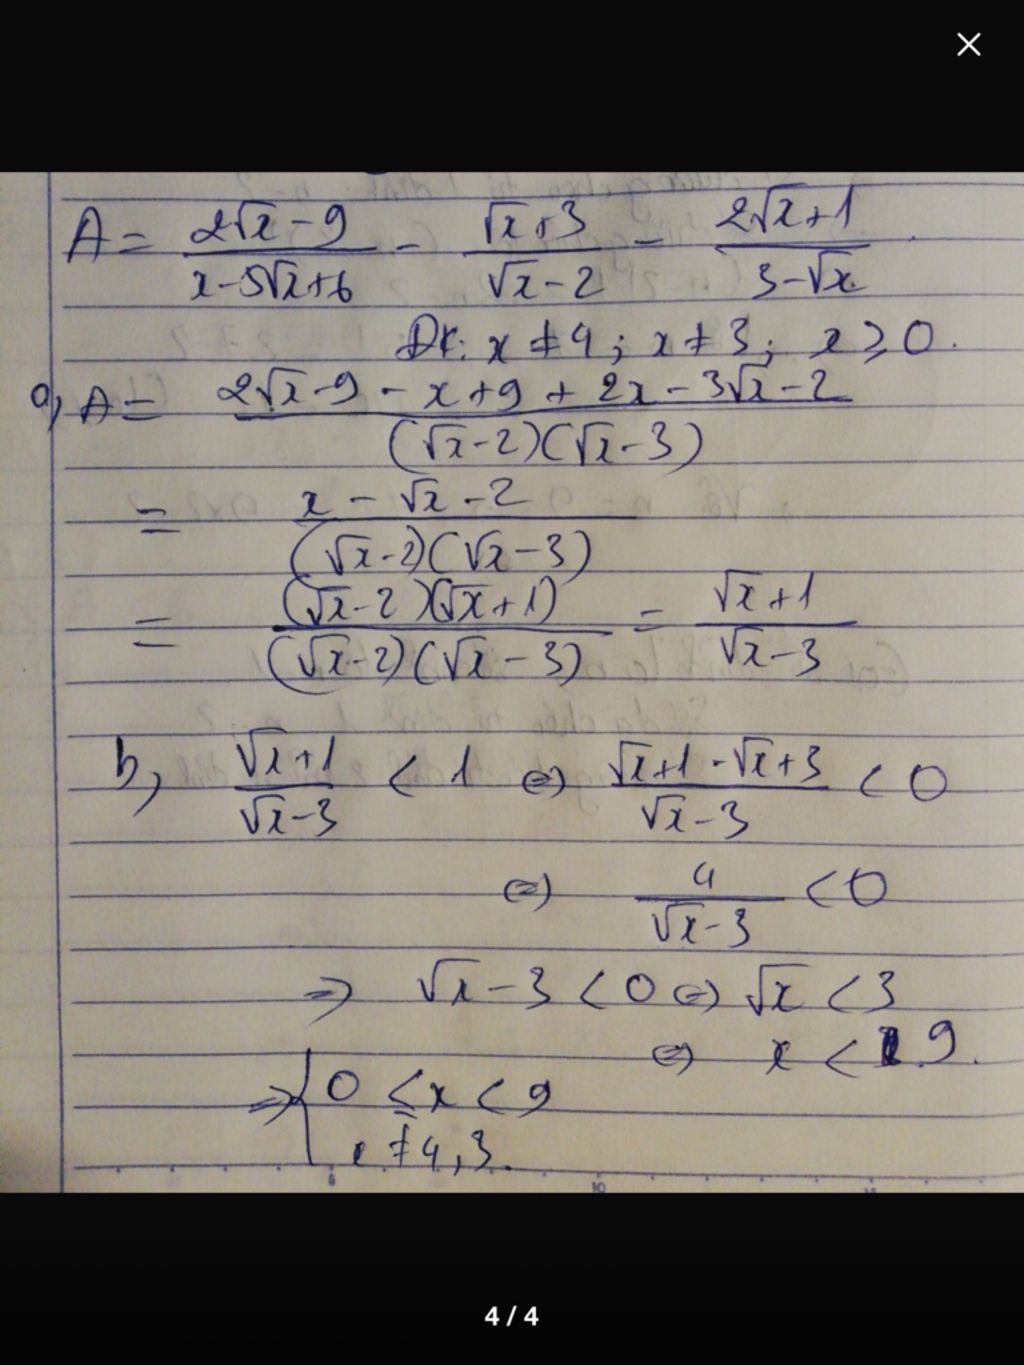 A = (2√x - 9)/(x - 5√x + 6) - (√x + 3)/(√x - 2) - (2√x + 1)/(3 - √x).
ĐK: x ≠ 4; x ≠ 3; x ≥ 0.
a, A = (2√x - 9 - x + 9 + 2x - 3√x - 2)/((√x - 2)(√x - 3))
= (x - √x - 2)/((√x - 2)(√x - 3))
= ((√x - 2)(√x + 1))/((√x - 2)(√x - 3)) = (√x + 1)/(√x - 3)
b, (√x + 1)/(√x - 3) < 1 ⇔ (√x + 1 - √x + 3)/(√x - 3) < 0
⇔ 4/(√x - 3) < 0
⇒ √x - 3 < 0 ⇔ √x < 3
⇔ x < 9.
⇒ { 0 ≤ x < 9
x ≠ 4, 3.
10
4 / 4